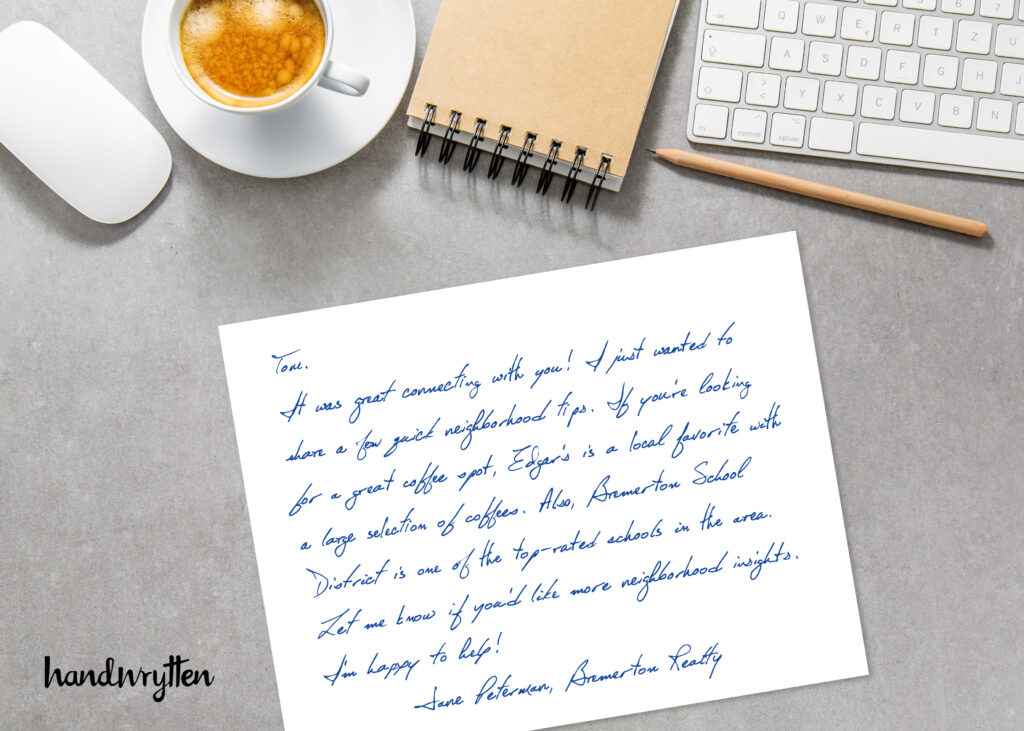 Q W E R T Z U
A S D F G H J
> < Y X C V B N
fn control option
Tom.
It was great connecting with you! I just wanted to
share a few quick neighborhood tips. If you're looking
for a great coffee spot, Edgar's is a local favorite with
a large selection of coffees. Also, Bremerton School
District is one of the top-rated schools in the area.
Let me know if you'd like more neighborhood insights.
I'm happy to help!
Jane Peterman, Bremerton Realty
handwrytten